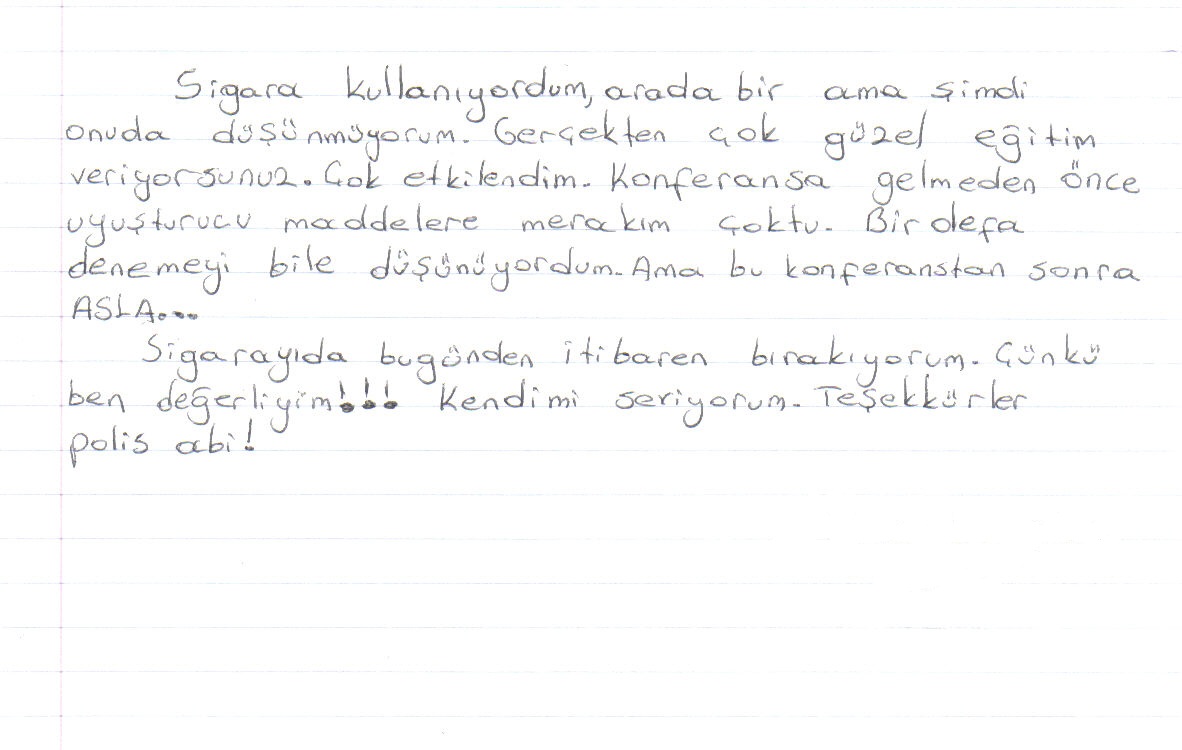 Sigara kullanıyordum, arada bir ama şimdi
onuda düşünmüyorum. Gerçekten çok güzel eğitim
veriyorsunuz. Çok etkilendim. Konferansa gelmeden önce
uyuşturucu maddelere merakım çoktu. Bir defa
denemeyi bile düşünüyordum. Ama bu konferanstan sonra
ASLA...
Sigarayıda bugünden itibaren bırakıyorum. Çünkü
ben değerliyim!!! Kendimi seriyorum. Teşekkürler
polis abi!